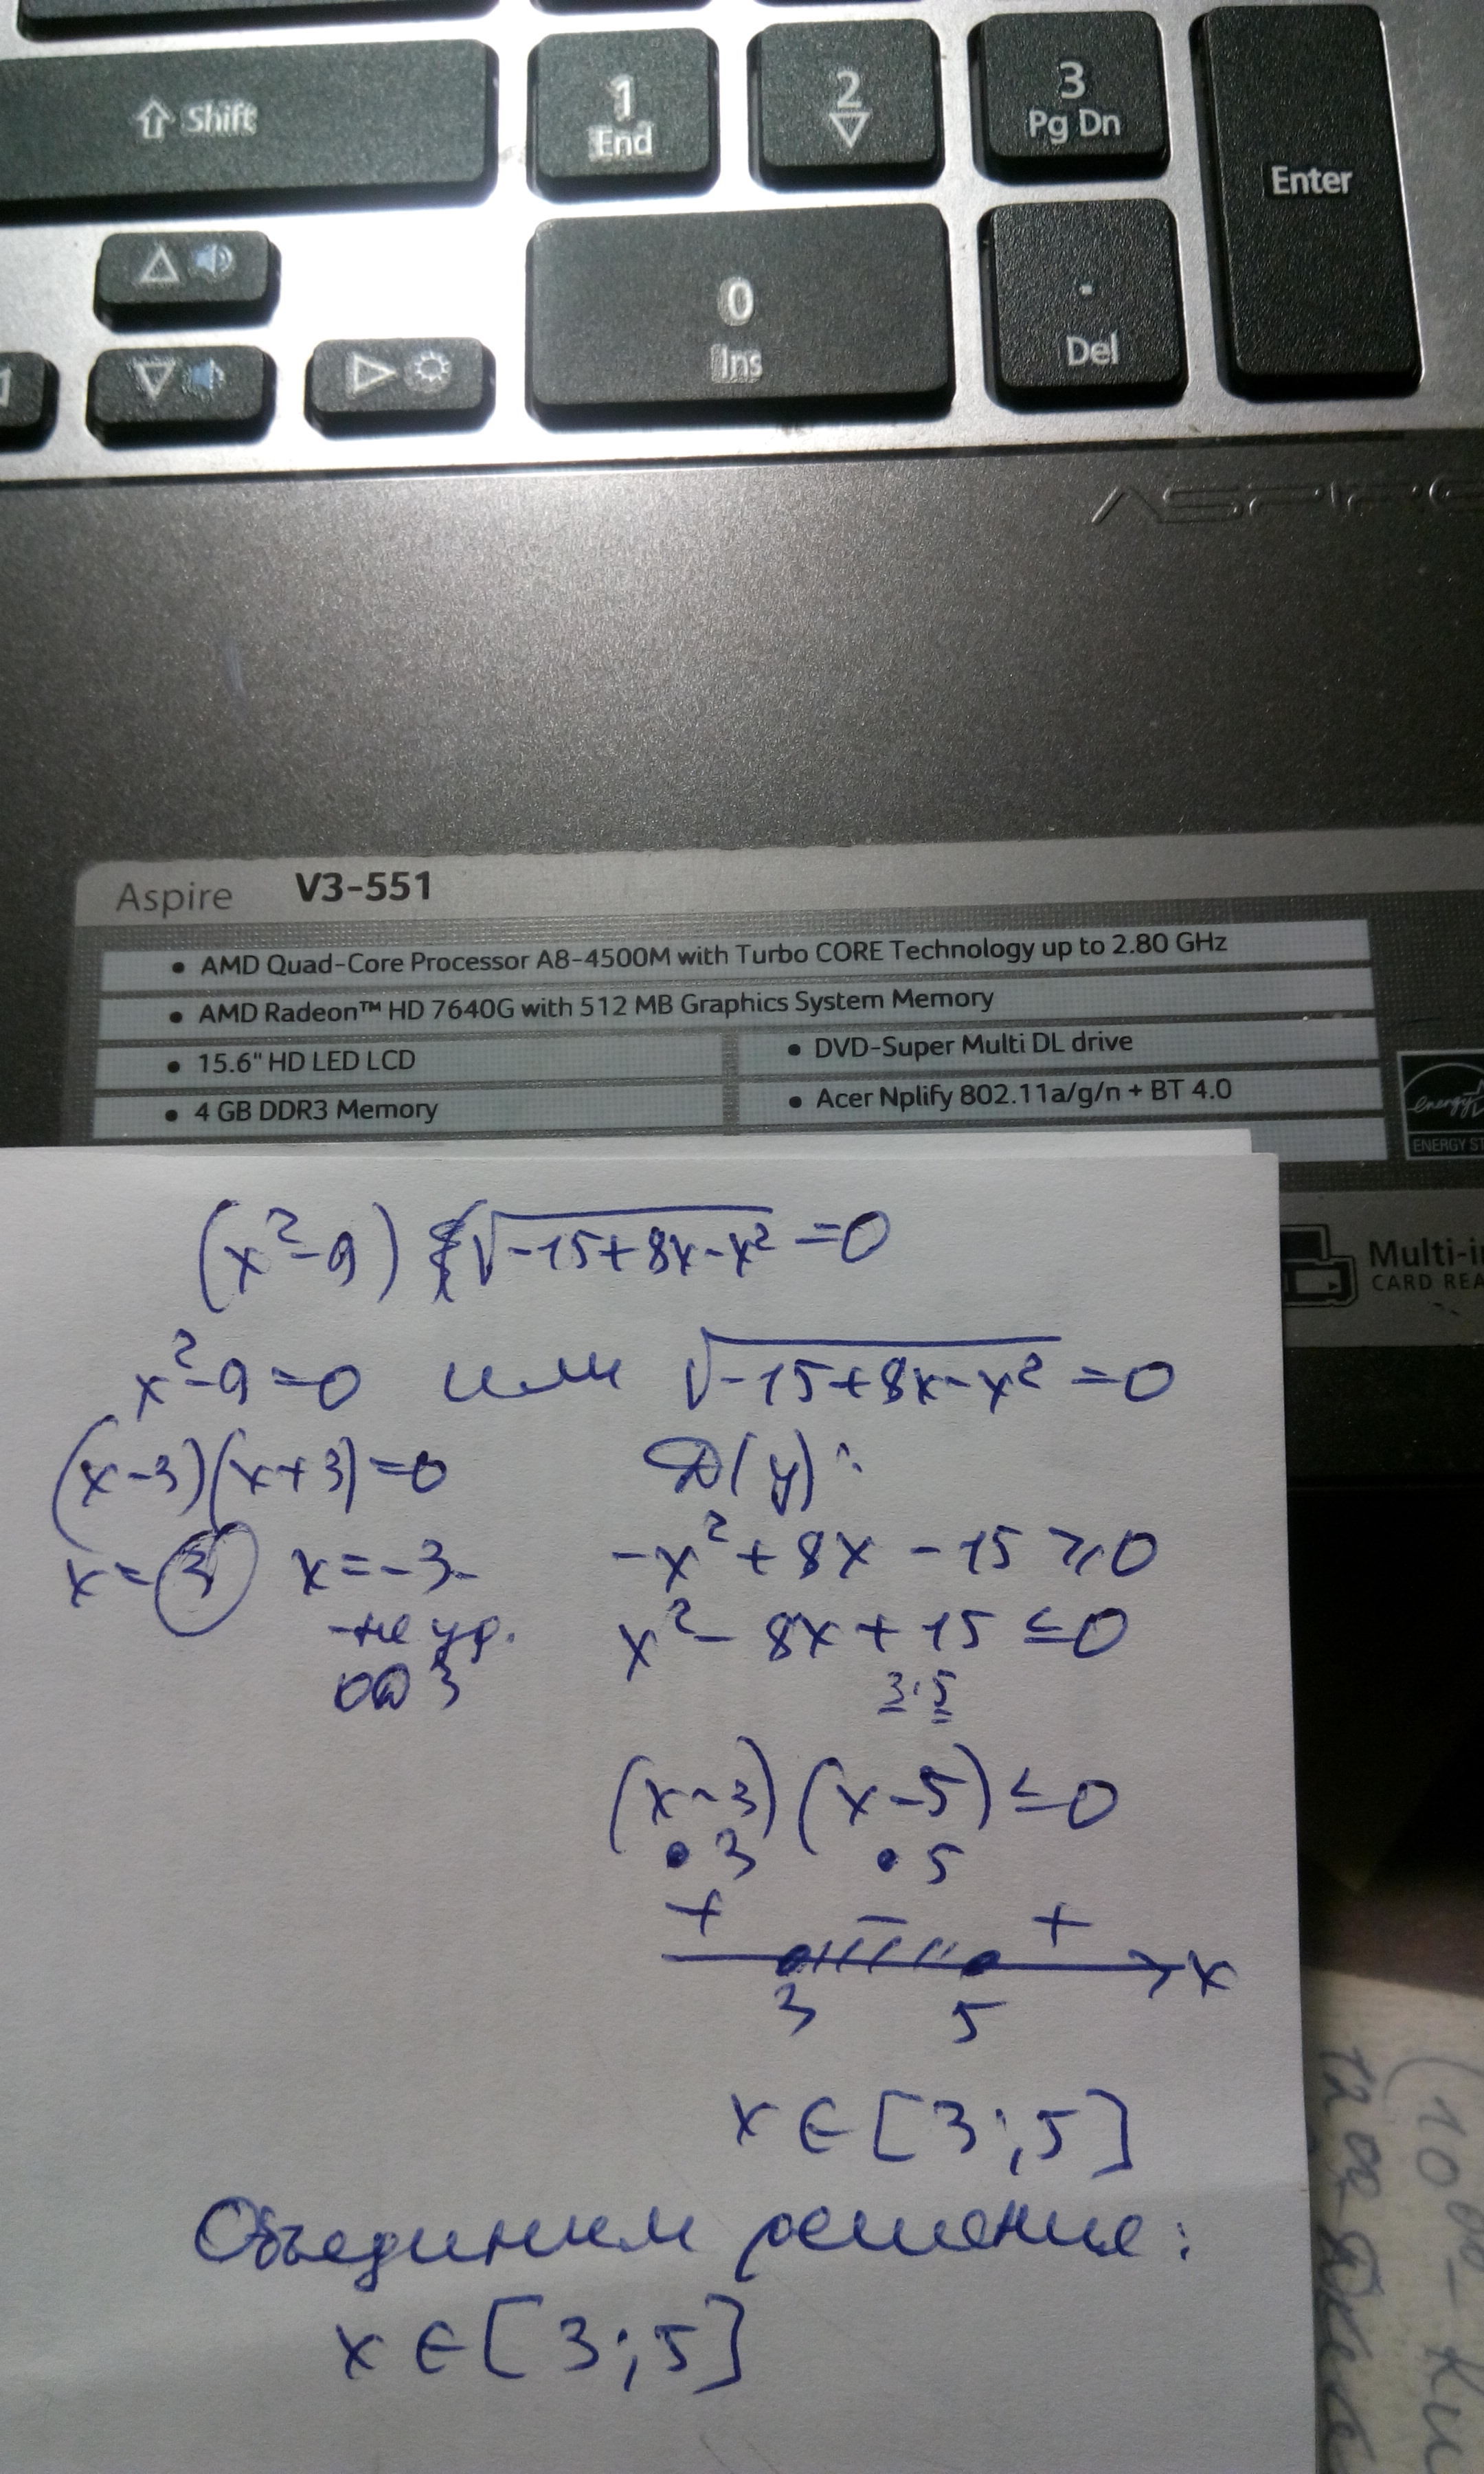 Shift
1
End
2
3
Pg Dn
Enter
0
Ins
.
Del
Aspire V3-551
• AMD Quad-Core Processor A8-4500M with Turbo CORE Technology up to 2.80 GHz
• AMD Radeon™ HD 7640G with 512 MB Graphics System Memory
• 15.6" HD LED LCD
• DVD-Super Multi DL drive
• 4 GB DDR3 Memory
• Acer Nplify 802.11a/g/n + BT 4.0
energy
ENERGY ST
Multi-i
CARD REA
(x²-9) √-15+8x-x² =0
x²-9=0 или √-15+8x-x² =0
(x-3)(x+3)=0 D(y):
x=3 x=-3- -x²+8x-15≥0
-не ур. x²-8x+15≤0
ОДЗ 3·5
(x-3)(x-5)≤0
• 3 • 5
+ - +
x
3 5
x∈[3;5]
Объединим решение:
x∈[3;5]